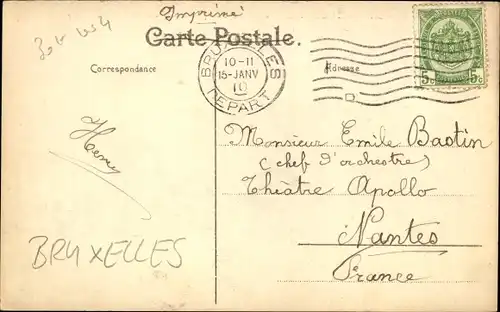 Imprimé
Carte Postale.
Correspondance
Adresse
BRUXELLES
10-11
15-JANV
10
DEPART
5c 5c
Henry
Monsieur Emile Bastin
(chef d'orchestre)
Théâtre Apollo
Nantes
France
BRUXELLES